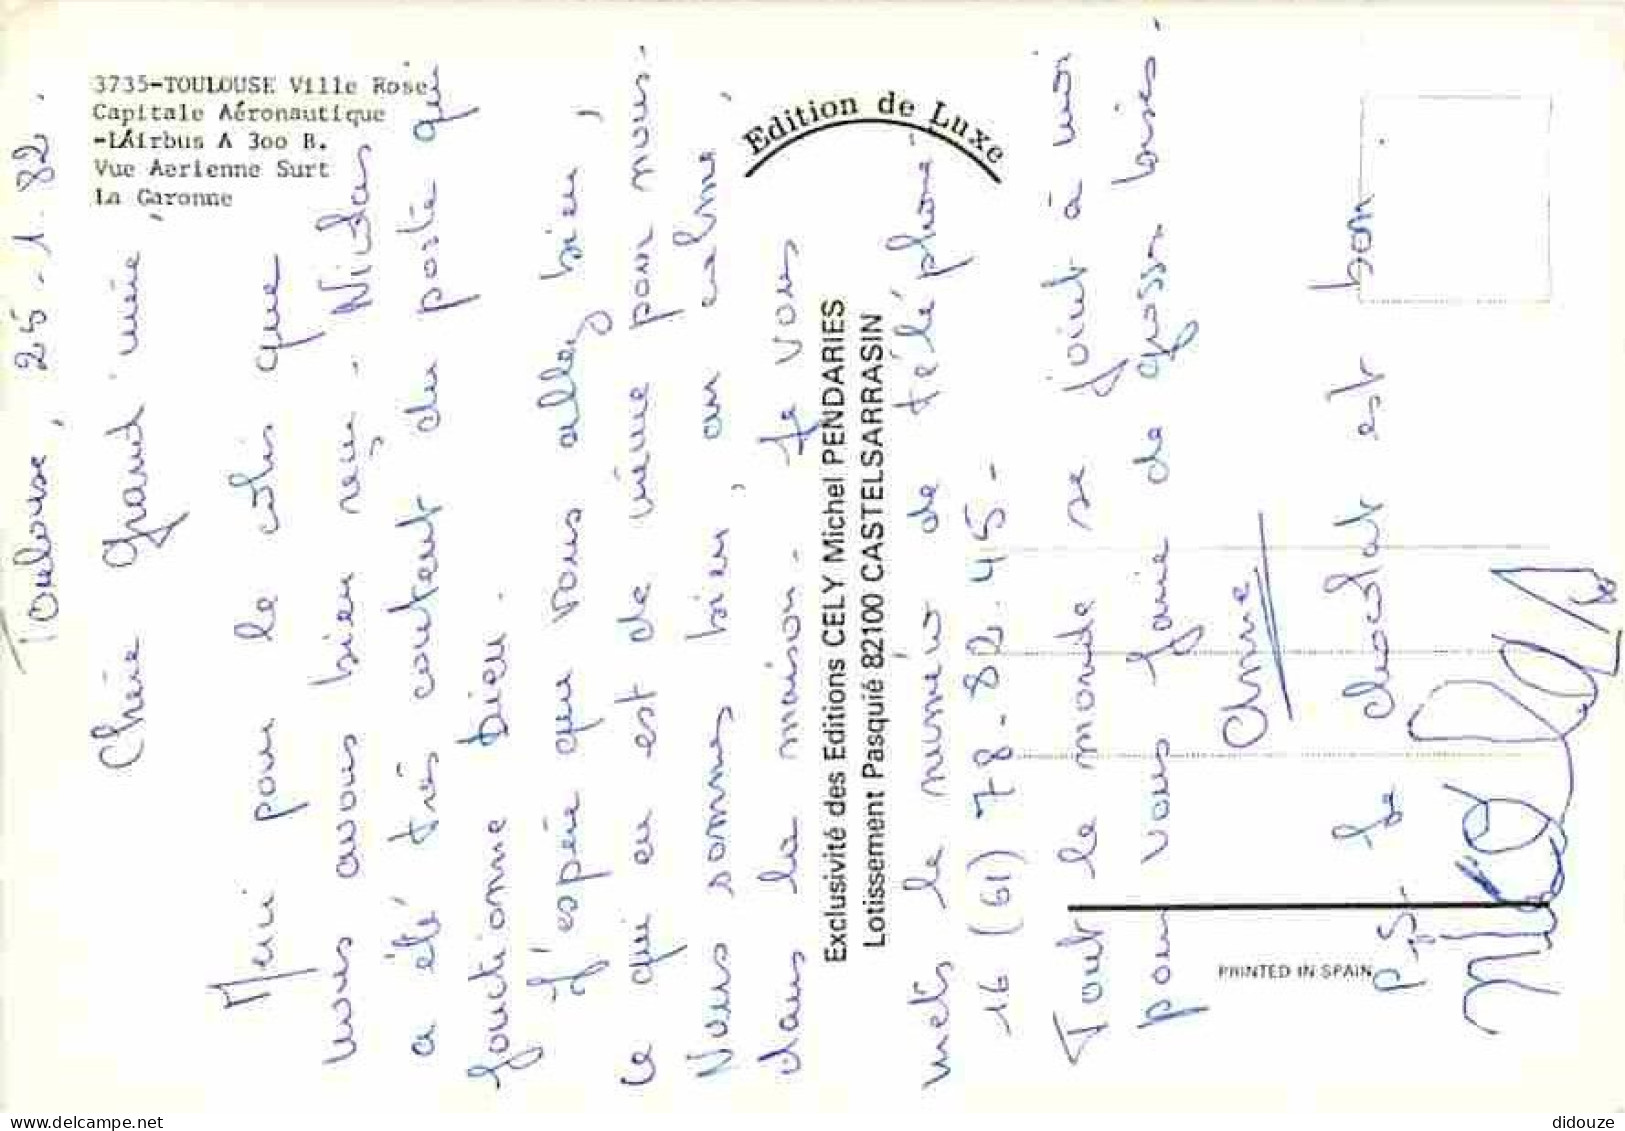 3735-TOULOUSE Ville Rose
Capitale Aéronautique
-LAirbus A 3oo B.
Vue Aerienne Surt
La Garonne
Edition de Luxe
Exclusivité des Editions CELY Michel PENDARIES
Lotissement Pasquié 82100 CASTELSARRASIN
PRINTED IN SPAIN
Toulouse, 25-1-82.
Chère Grand'mère,
Merci pour le colis que
nous avons bien reçu. Nicolas
a été très content du poste qui
fonctionne bien.
J'espère que vous allez bien,
ce qui en est de même pour nous.
Nous sommes bien, au calme,
dans la maison. Je vous
mets le numéro de téléphone.
16 (61) 78-82-45-
Tout le monde se joint à moi
pour vous faire de grosses bises.
Anne
P.S. Le chocolat est bon
Nicolas
didouze
delcampe.net